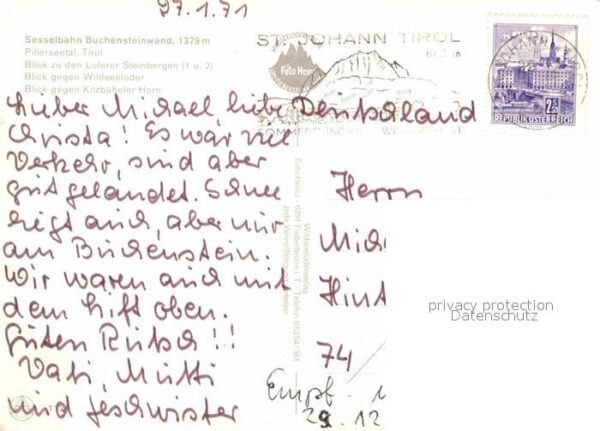 27.1.71
Sesselbahn Buchensteinwand, 1379 m
Pillerseetal, Tirol
Blick zu den Loferer Steinbergen (1 u. 2)
Blick gegen Wildseeloder
Blick gegen Kitzbüheler Horn
ST. JOHANN TIROL
Foto Heinz
REPUBLIK ÖSTERREICH
Lieber Michael, liebe
Christa! Es war viel
Verkehr, sind aber
gut gelandet. Schnee
liegt auch, aber nur
am Buchenstein.
Wir waren auch mit
dem Lift oben.
Guten Rutsch!!
Vati, Mutti
und Geschwister
Wildseeloderverlag
Foto Heinz 6391 Fieberbrunn i. T. Telefon 05354/361
Jede Vervielfältigung verboten
Deutschland
Herrn
Mich
Hint
74
Empf.
29. 12
privacy protection
Datenschutz